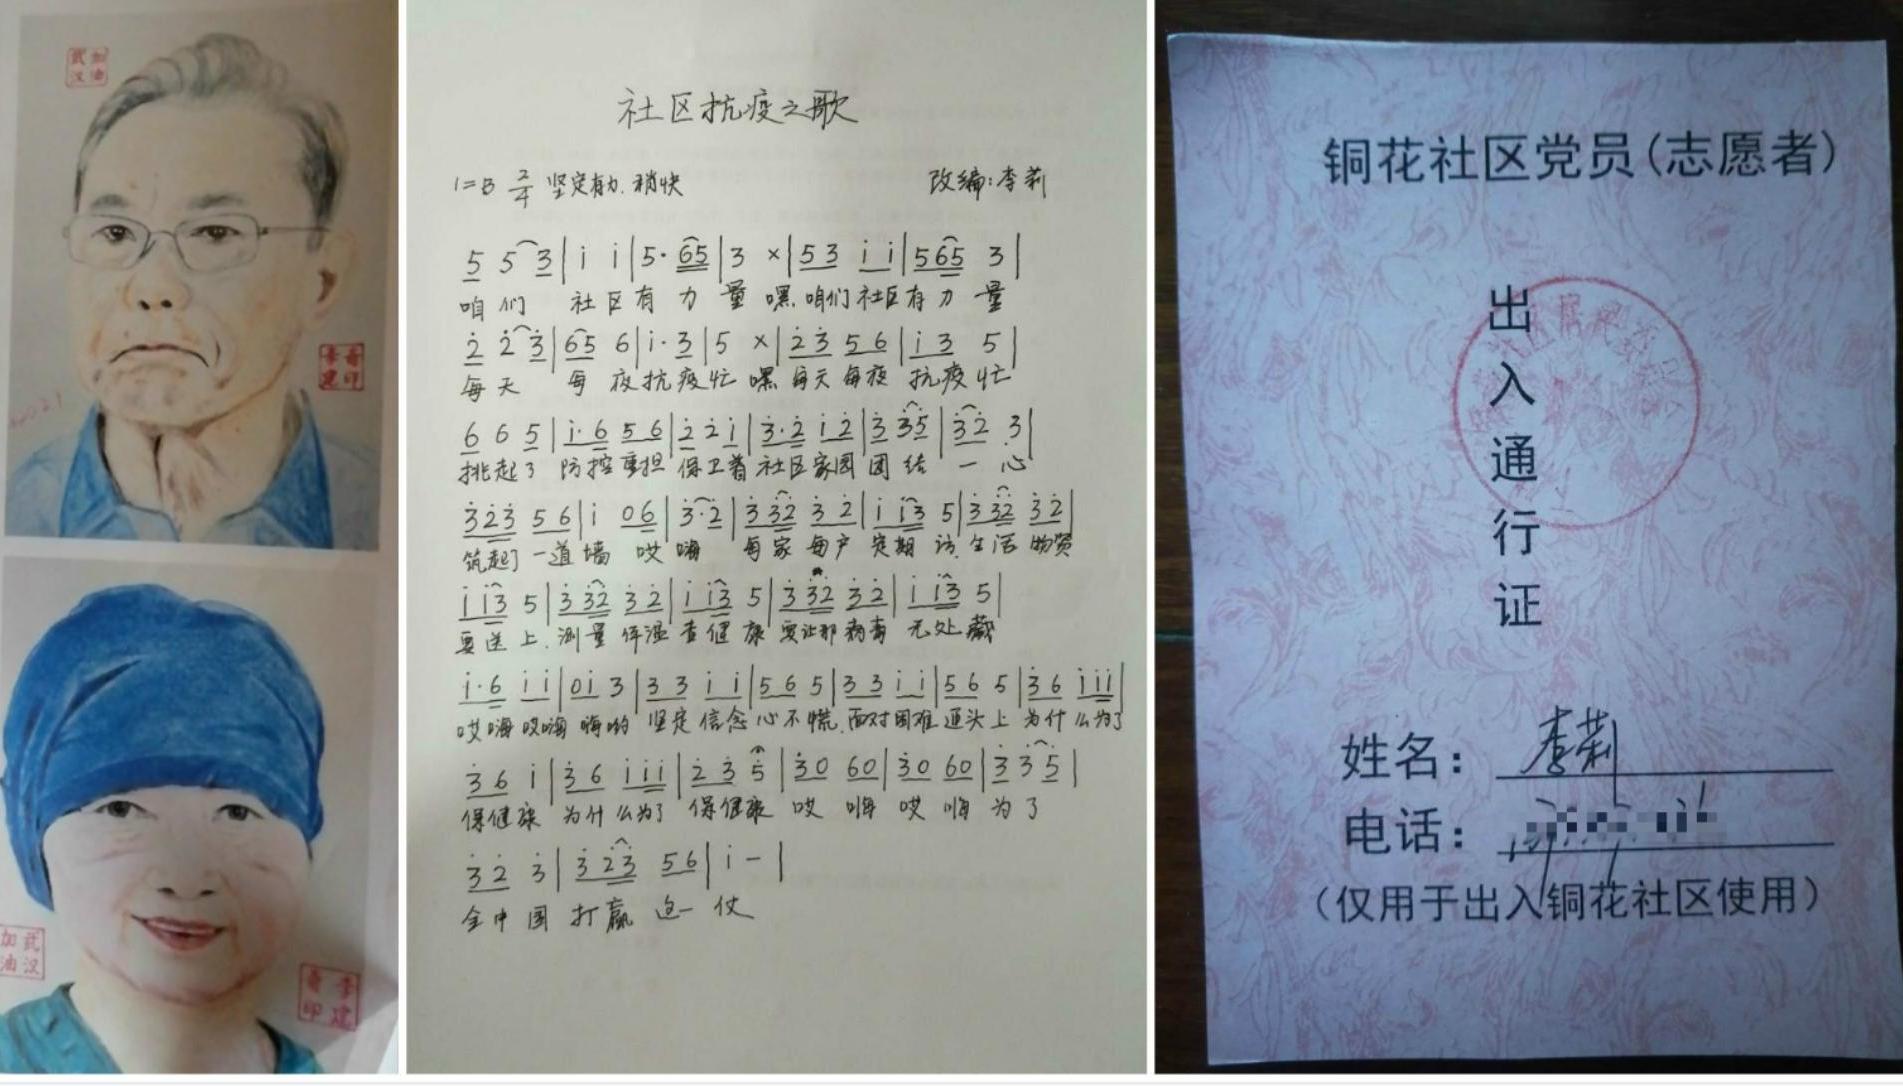 武汉
加油
李建
斋印
2021
武汉
加油
李建
斋印
社区抗疫之歌
1=B 2/4 坚定有力.稍快 改编:李莉
5 5 3|i i|5· 65|3 ×|53 i i|565 3|
咱们 社区有力量嘿咱们社区有力量
2 2 3|65 6|i· 3|5 ×|23 56|i 3 5|
每天 每夜抗疫忙嘿每天每夜 抗疫忙
6 6 5|i·6 56|2 2 i|3·2 i 2|3 35|32 3|
挑起了 防控重担 保卫着 社区家园 团结 一 心
323 56|i 06|3·2|3 32 3 2|i i3 5|3 32 32|
筑起了 一道墙 哎嗨 每家每户 定期访.生活物资
i i3 5|3 32 3 2|i i3 5|3 32 32|i i3 5|
要送上.测量体温查健康 要让那病毒 无处藏
i·6 i i|0i 3|3 3 i i|5 6 5|3 3 i i|5 6 5|3 6 iii|
哎嗨哎嗨 嗨哟 坚定信念心不慌.面对困难迎头上 为什么为了
3 6 i|3 6 iii|2 3 5|30 60|30 60|3 3 5|
保健康 为什么为了 保健康 哎 嗨 哎 嗨 为了
3 2 3|3 23 56|i -|
全中国 打赢 这一仗
铜花社区党员(志愿者)
出
入
通
行
证
姓名: 李莉
电话:
(仅用于出入铜花社区使用)